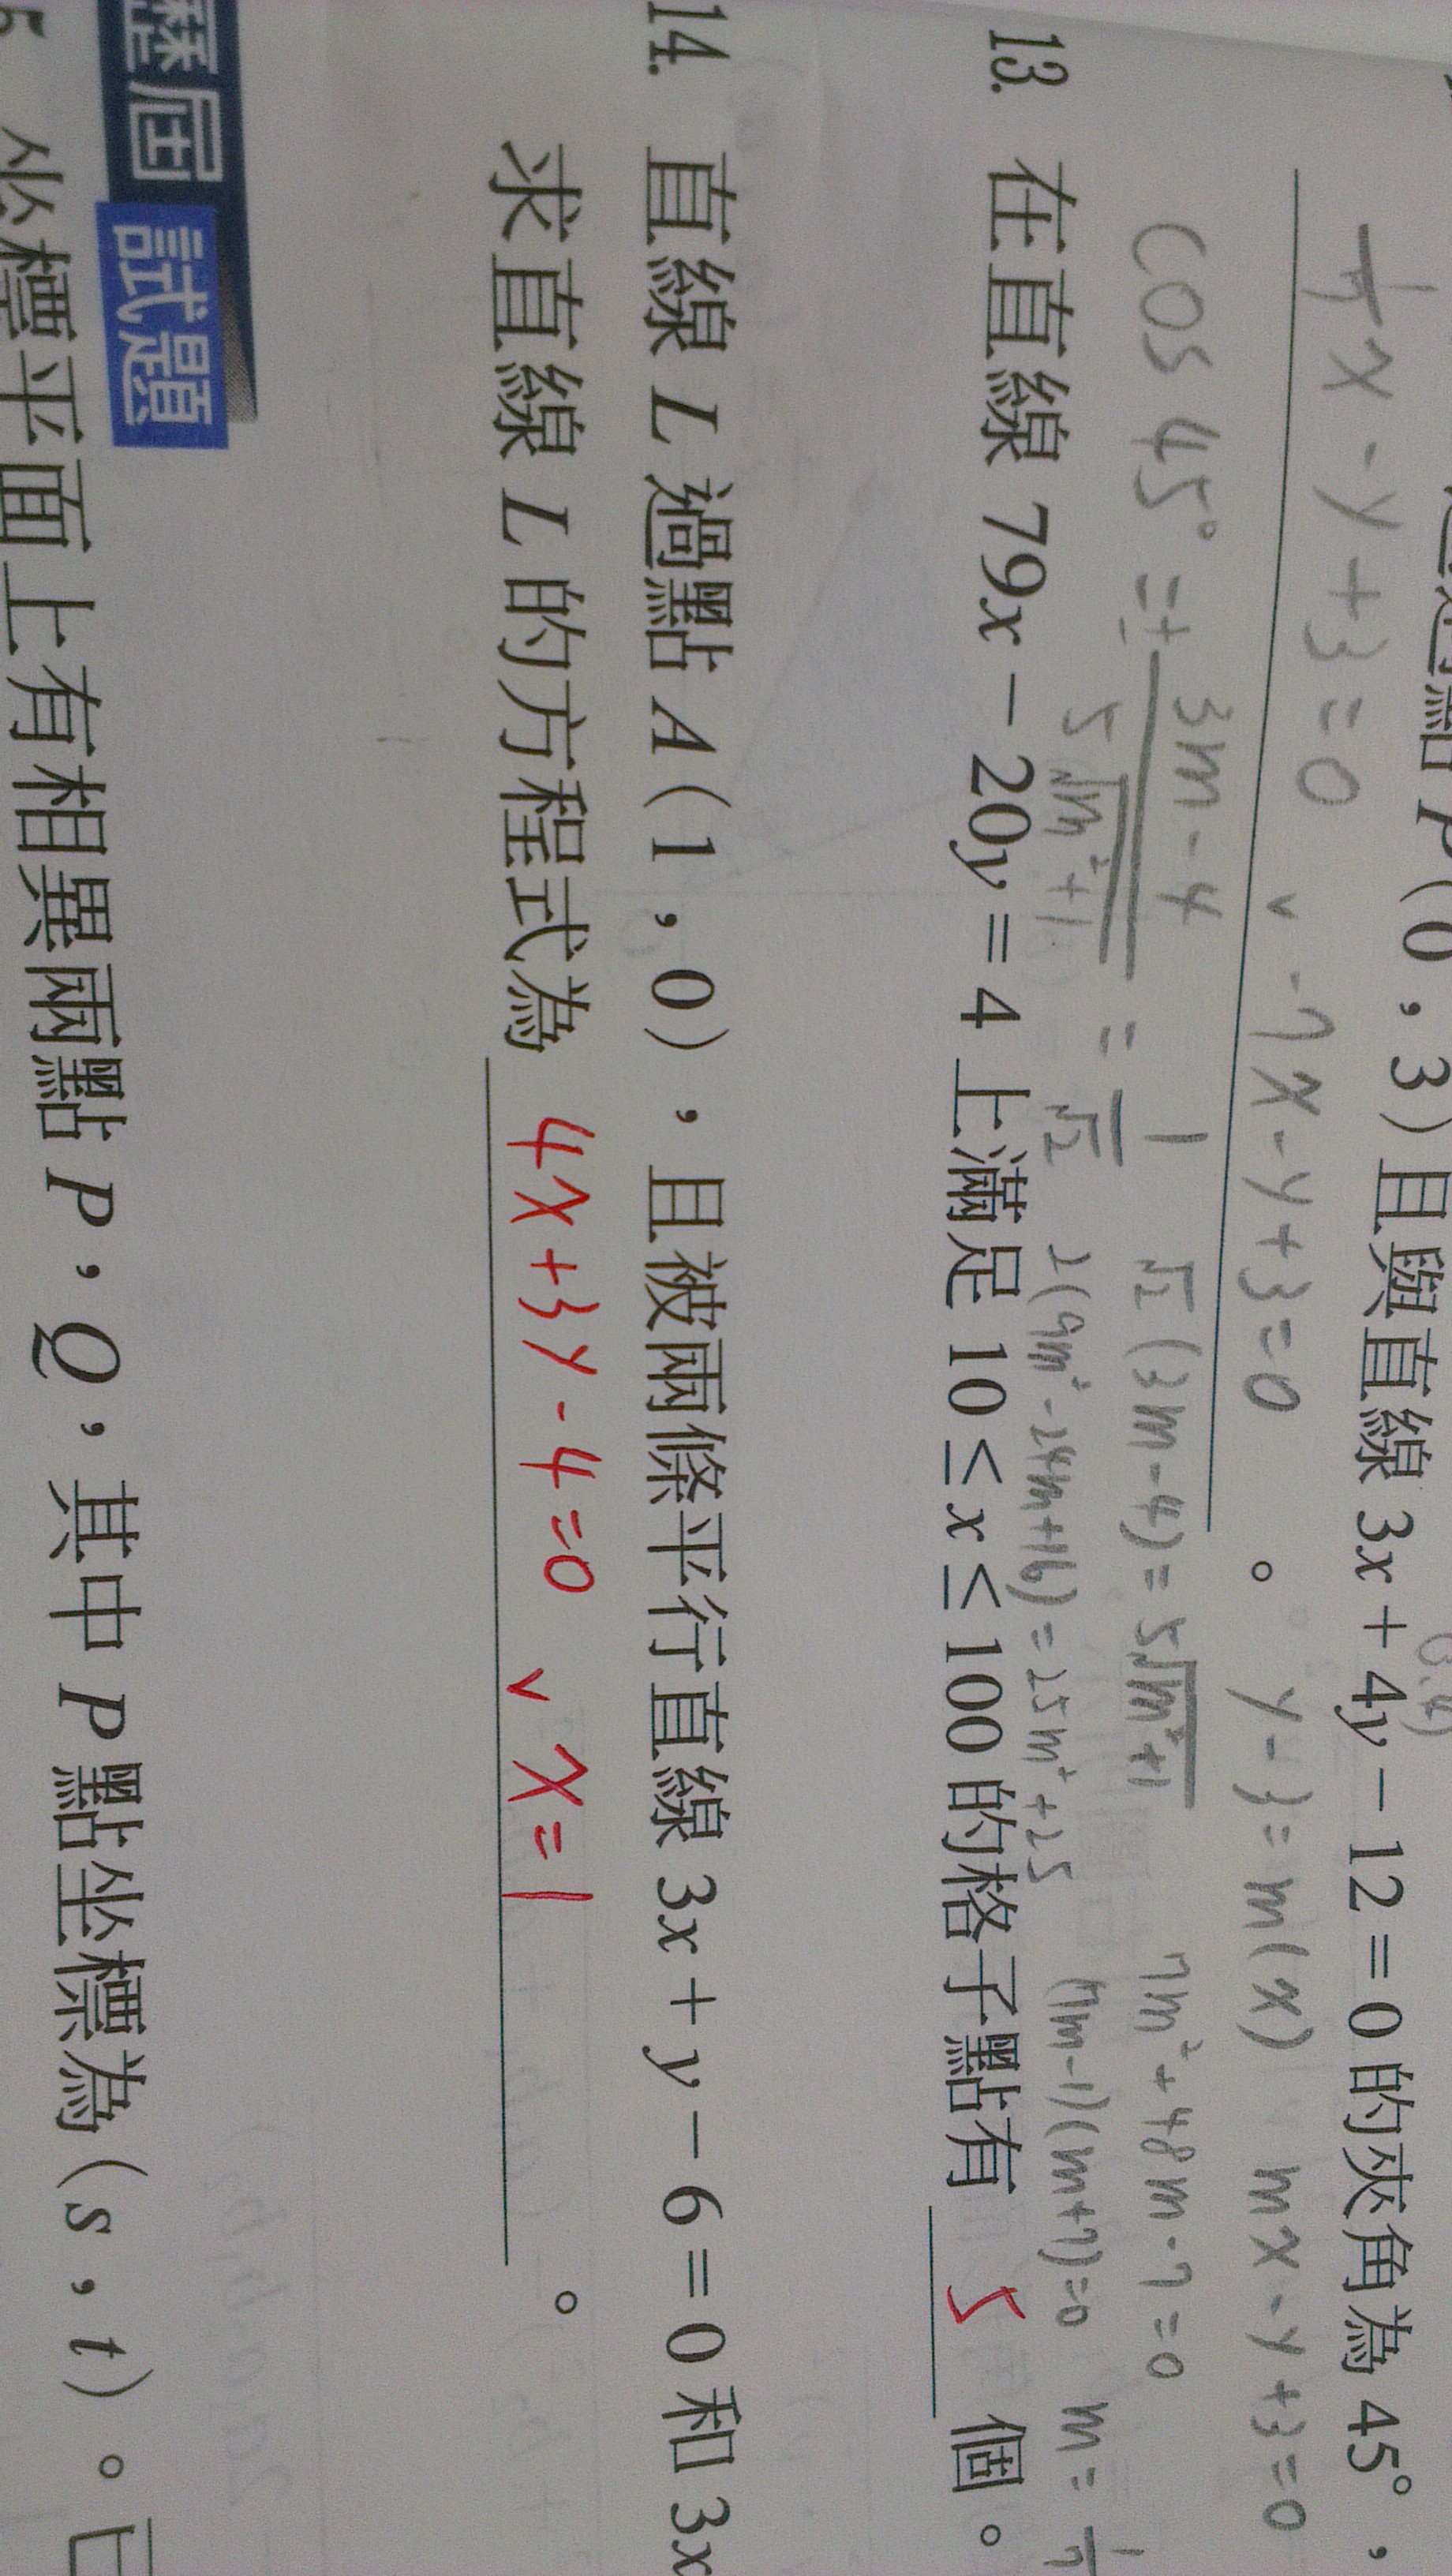 過點 P(0,3)且與直線 3x+4y-12=0 的夾角為 45°,
y-3=m(x) mx-y+3=0
1/7 x-y+3=0 ∨ -7x-y+3=0 。
cos 45° = ± (3m-4)/(5√(m²+1)) = 1/√2 √2(3m-4)=5√(m²+1) 7m²+48m-7=0
2(9m²-24m+16)=25m²+25 (7m-1)(m+7)=0 m=1/7
13. 在直線 79x-20y=4 上滿足 10≤x≤100 的格子點有 5 個。
14. 直線 L 過點 A(1,0),且被兩條平行直線 3x+y-6=0 和 3x
求直線 L 的方程式為 4x+3y-4=0 ∨ x=1 。
歷屆試題
坐標平面上有相異兩點 P,Q,其中 P 點坐標為(s,t)。已